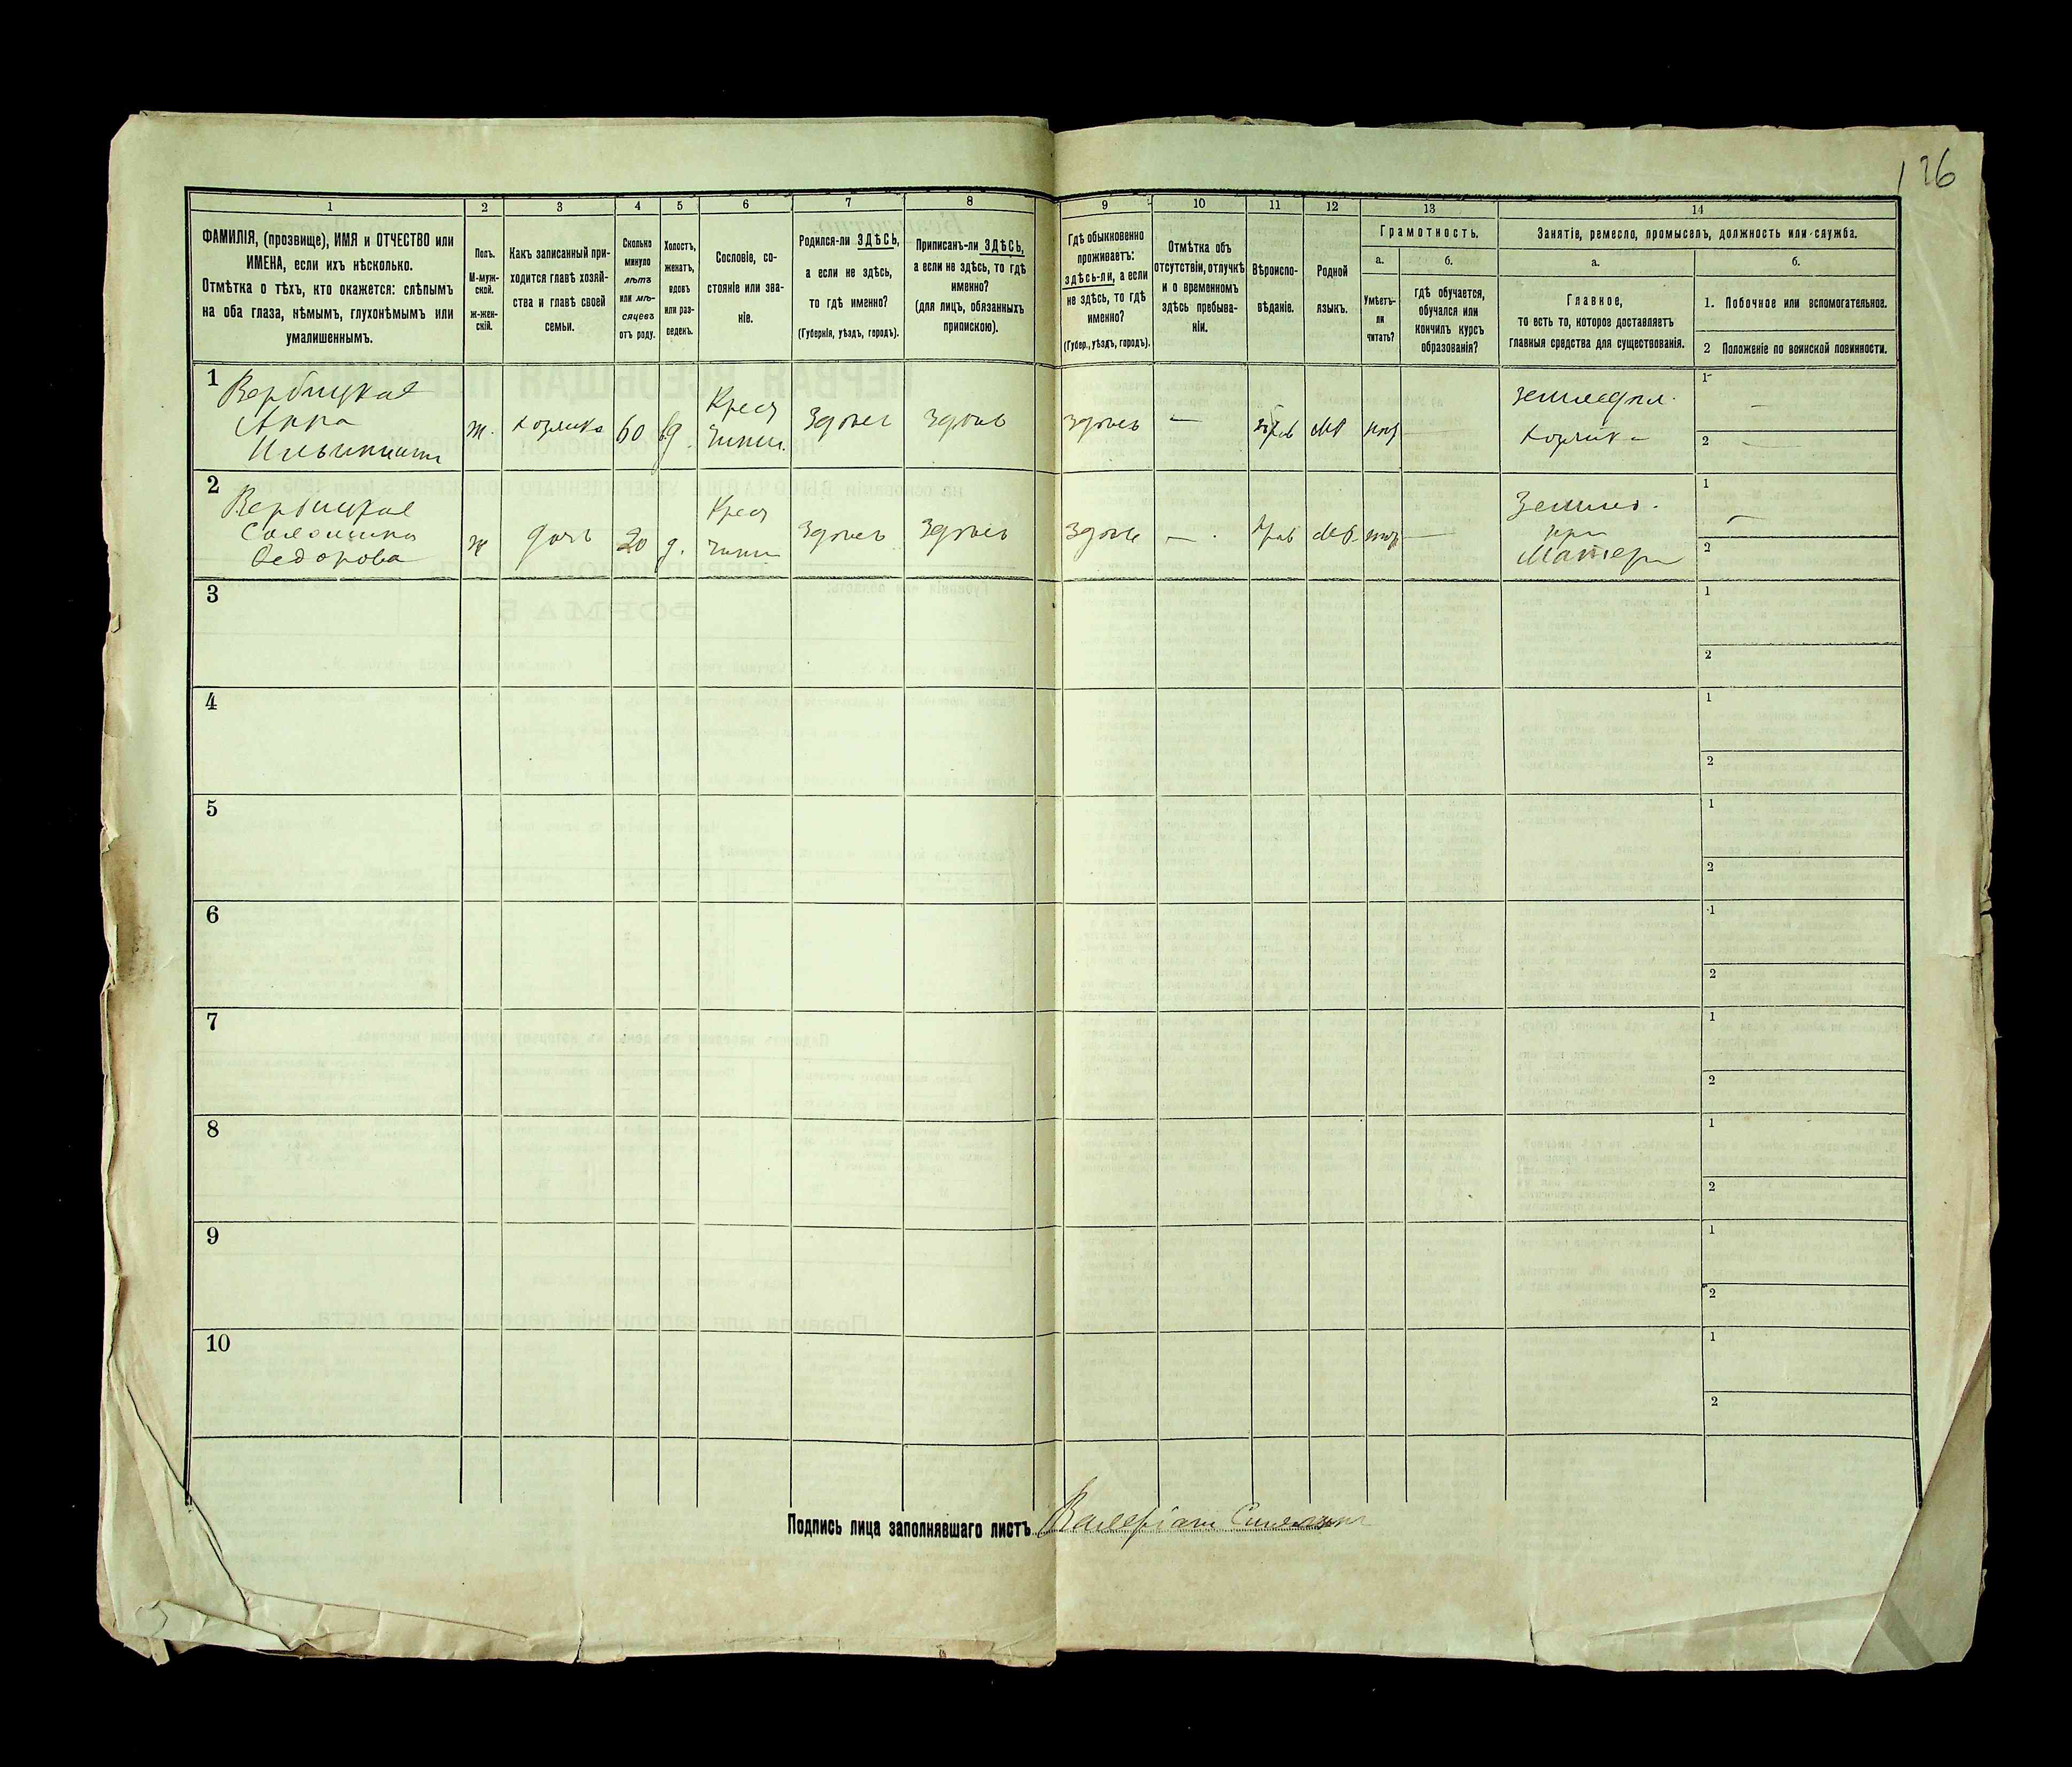 126
1 2 3 4 5 6 7 8 9 10 11 12 13 14
ФАМИЛІЯ, (прозвище), ИМЯ и ОТЧЕСТВО или
ИМЕНА, если ихъ нѣсколько.
Отмѣтка о тѣхъ, кто окажется: слѣпымъ
на оба глаза, нѣмымъ, глухонѣмымъ или
умалишеннымъ.
Полъ.
М-муж-
ской.
ж-жен-
скій.
Какъ записанный при-
ходится главѣ хозяй-
ства и главѣ своей
семьи.
Сколько
минуло
лѣтъ
или мѣ-
сяцевъ
отъ роду.
Холостъ,
женатъ,
вдовъ
или раз-
веденъ.
Сословіе, со-
стояніе или зва-
ніе.
Родился-ли ЗДѢСЬ,
а если не здѣсь,
то гдѣ именно?
(Губернія, уѣздъ, городъ).
Приписанъ-ли ЗДѢСЬ,
а если не здѣсь, то гдѣ
именно?
(для лицъ, обязанныхъ
припискою).
Гдѣ обыкновенно
проживаетъ:
здѣсь-ли, а если
не здѣсь, то гдѣ
именно?
(Губер., уѣздъ, городъ).
Отмѣтка объ
отсутствіи, отлучкѣ
и о временномъ
здѣсь пребыва-
ніи.
Вѣроиспо-
вѣданіе.
Родной
языкъ.
Грамотность.
а.
Умѣетъ-
ли
читать?
б.
гдѣ обучается,
обучался или
кончилъ курсъ
образованія?
Занятіе, ремесло, промыселъ, должность или служба.
а.
Главное,
то есть то, которое доставляетъ
главныя средства для существованія.
б.
1. Побочное или вспомогательное.
2 Положеніе по воинской повинности.
1
Вербицкая
Анна
ж.
60
Крест
Здѣсь
Здѣсь
здѣсь
—
прав
земледѣл.
1 —
2 —
2
Вербицкая
Соломинка
Федорова
ж
дочь
20
д.
Крест
Здѣсь
Здѣсь
Здѣсь
—
Прав
—
при
Матери
1 —
2
3
1
2
4
1
2
5
1
2
6
1
2
7
1
2
8
1
2
9
1
2
10
1
2
Подпись лица заполнявшаго листъ Валеріанъ